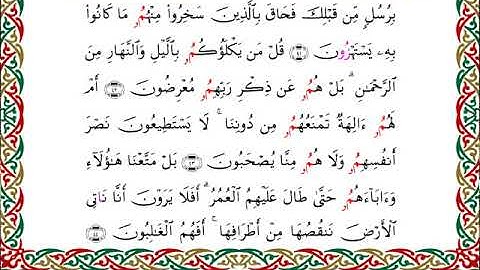 بِرُسُلٍ مِّن قَبْلِكَ فَحَاقَ بِالَّذِينَ سَخِرُواْ مِنْهُمُ مَا كَانُواْ
بِهِۦ يَسْتَهْزِءُونَ ۝٤١ قُلْ مَن يَكْلَؤُكُمُ بِالَّيْلِ وَالنَّهَارِ مِنَ
الرَّحْمَٰنِ ۗ بَلْ هُمُ عَن ذِكْرِ رَبِّهِمُ مُعْرِضُونَ ۝٤٢ أَمْ
لَهُمُ ءَالِهَةٌ تَمْنَعُهُمُ مِن دُونِنَا ۚ لَا يَسْتَطِيعُونَ نَصْرَ
أَنفُسِهِمُ وَلَا هُمُ مِنَّا يُصْحَبُونَ ۝٤٣ بَلْ مَتَّعْنَا هَٰؤُلَآءِ
وَءَابَآءَهُمُ حَتَّىٰ طَالَ عَلَيْهِمُ الْعُمُرُ ۗ أَفَلَا يَرَوْنَ أَنَّا نَاتِى
الْأَرْضَ نَنقُصُهَا مِنْ أَطْرَافِهَا ۚ أَفَهُمُ الْغَٰلِبُونَ ۝٤٤